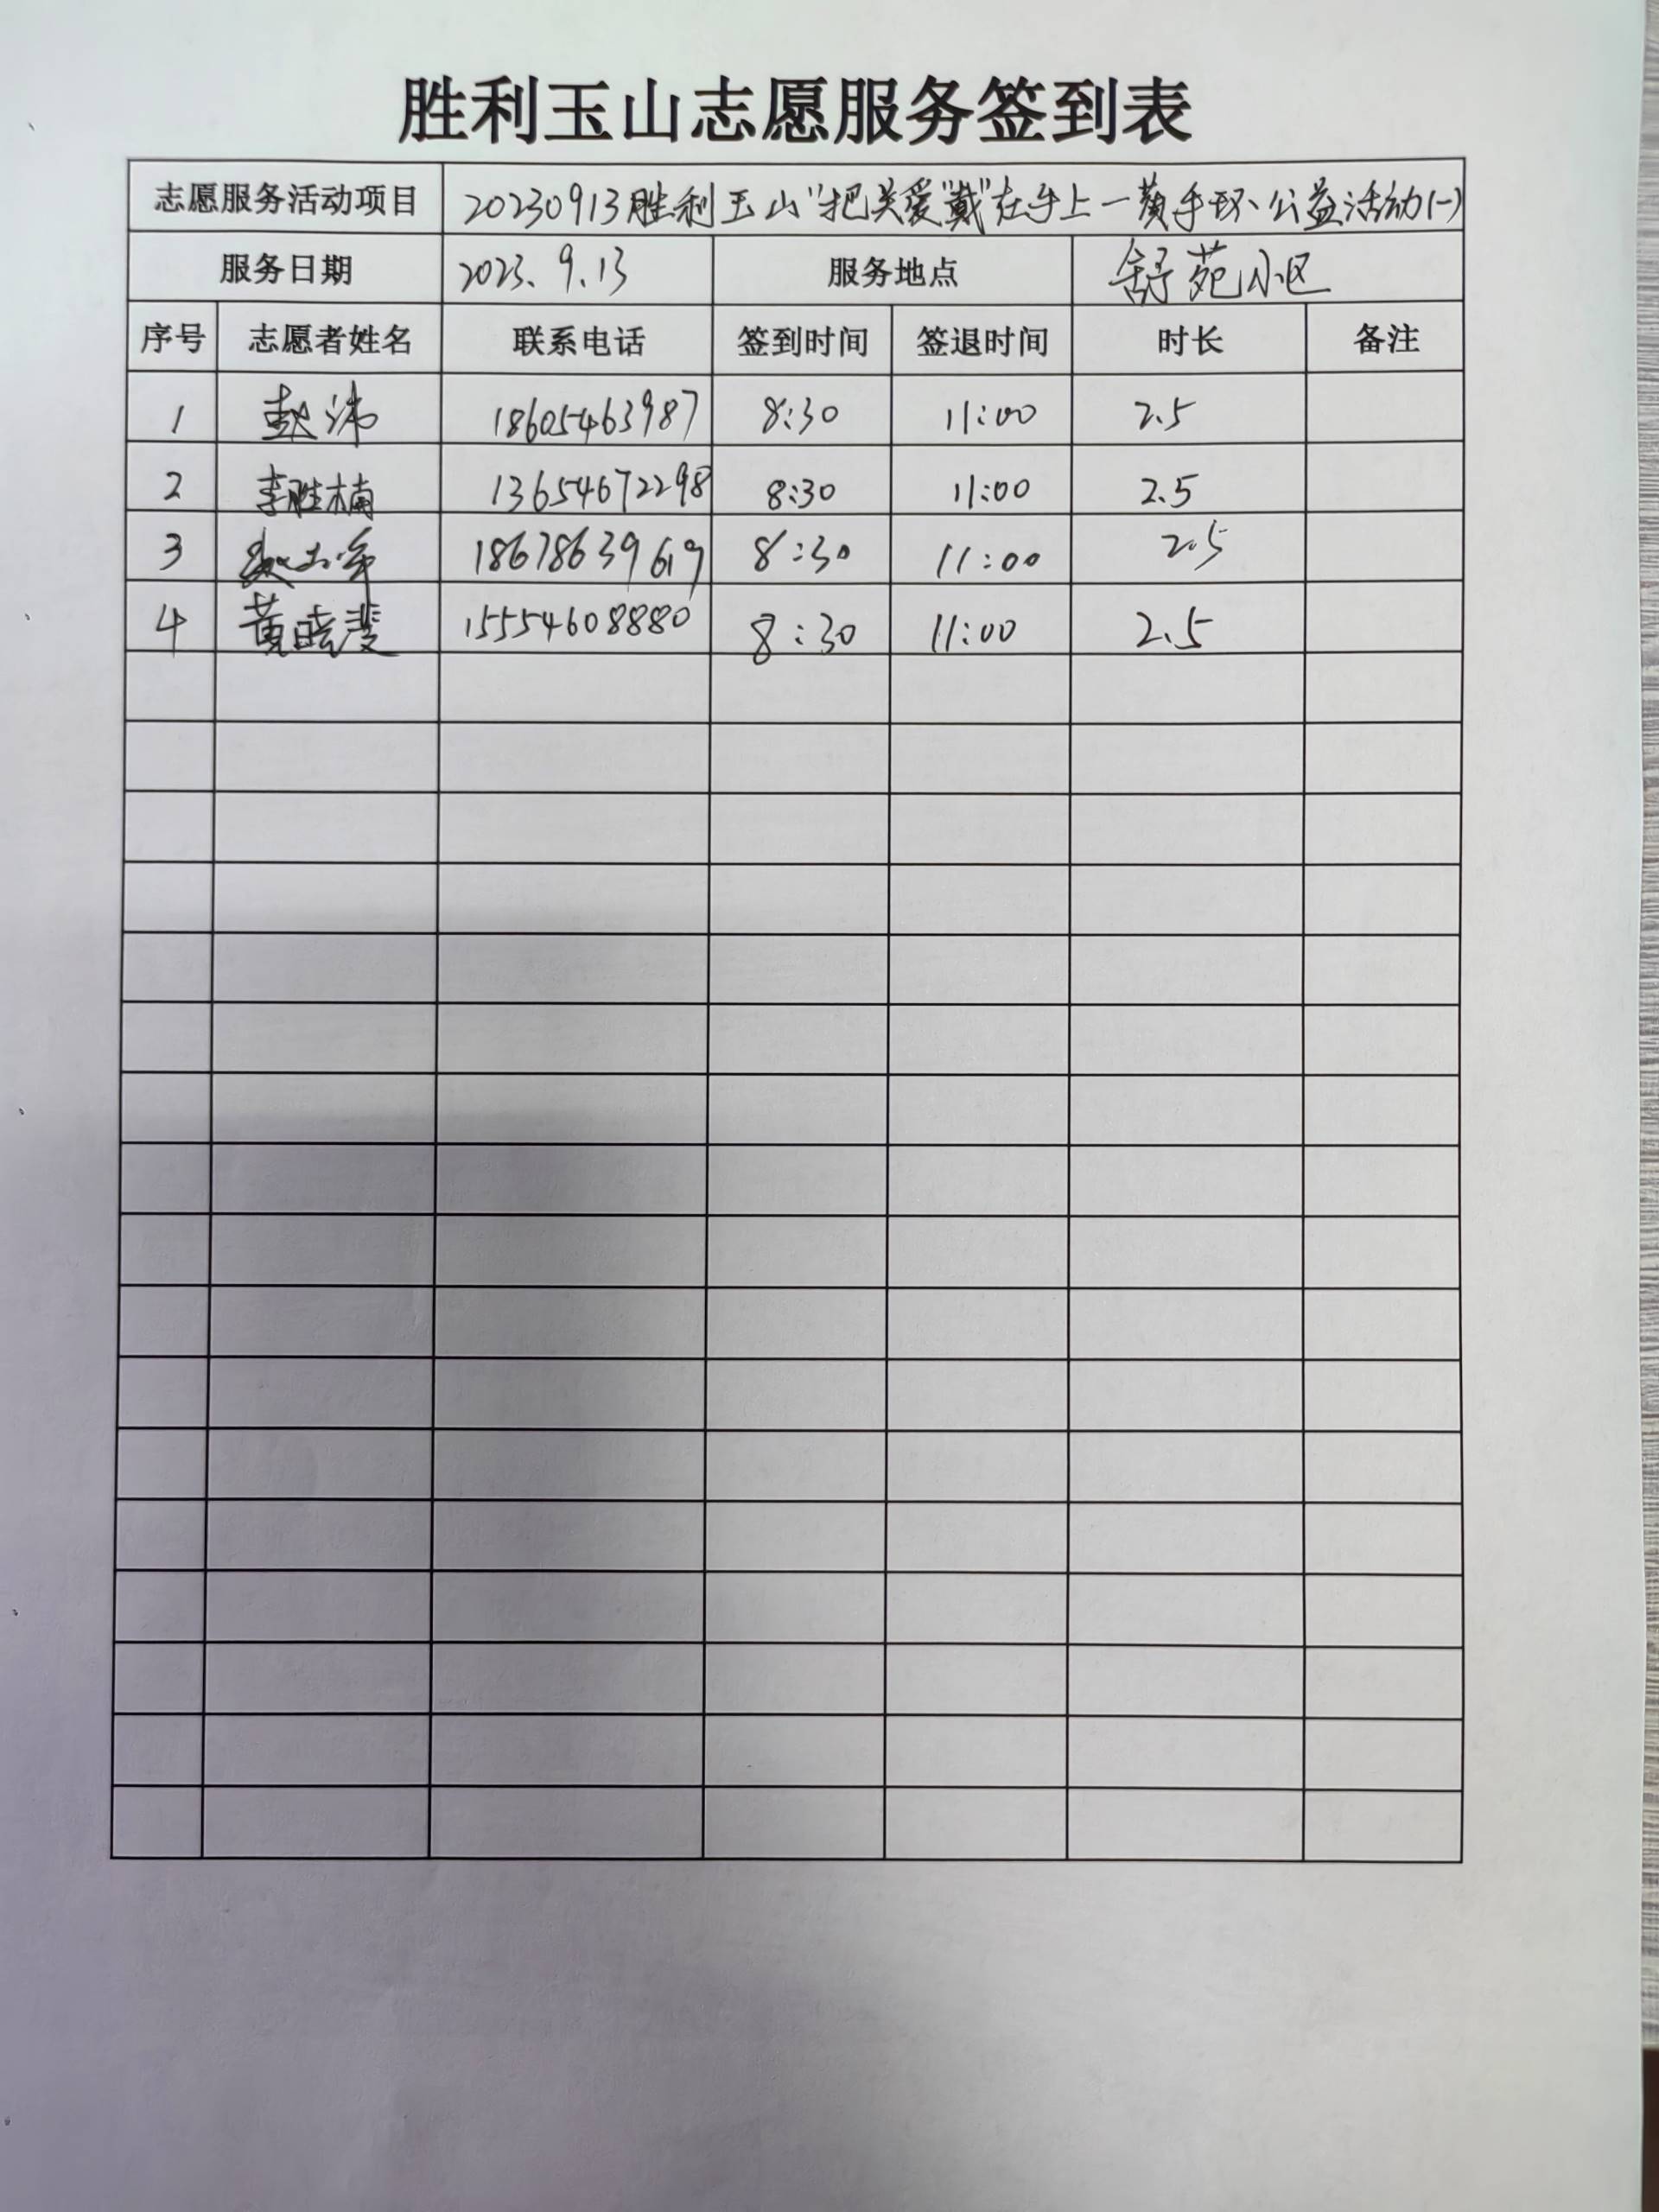 胜利玉山志愿服务签到表
志愿服务活动项目 20230913胜利玉山"把关爱"戴"在手上一黄手环公益活动(一)
服务日期 2023.9.13 服务地点 舒苑小区
序号 志愿者姓名 联系电话 签到时间 签退时间 时长 备注
1 赵沛 18605463987 8:30 11:00 2.5
2 李胜楠 13654672298 8:30 11:00 2.5
3 18678639619 8:30 11:00 2.5
4 黄晓斐 15554608880 8:30 11:00 2.5